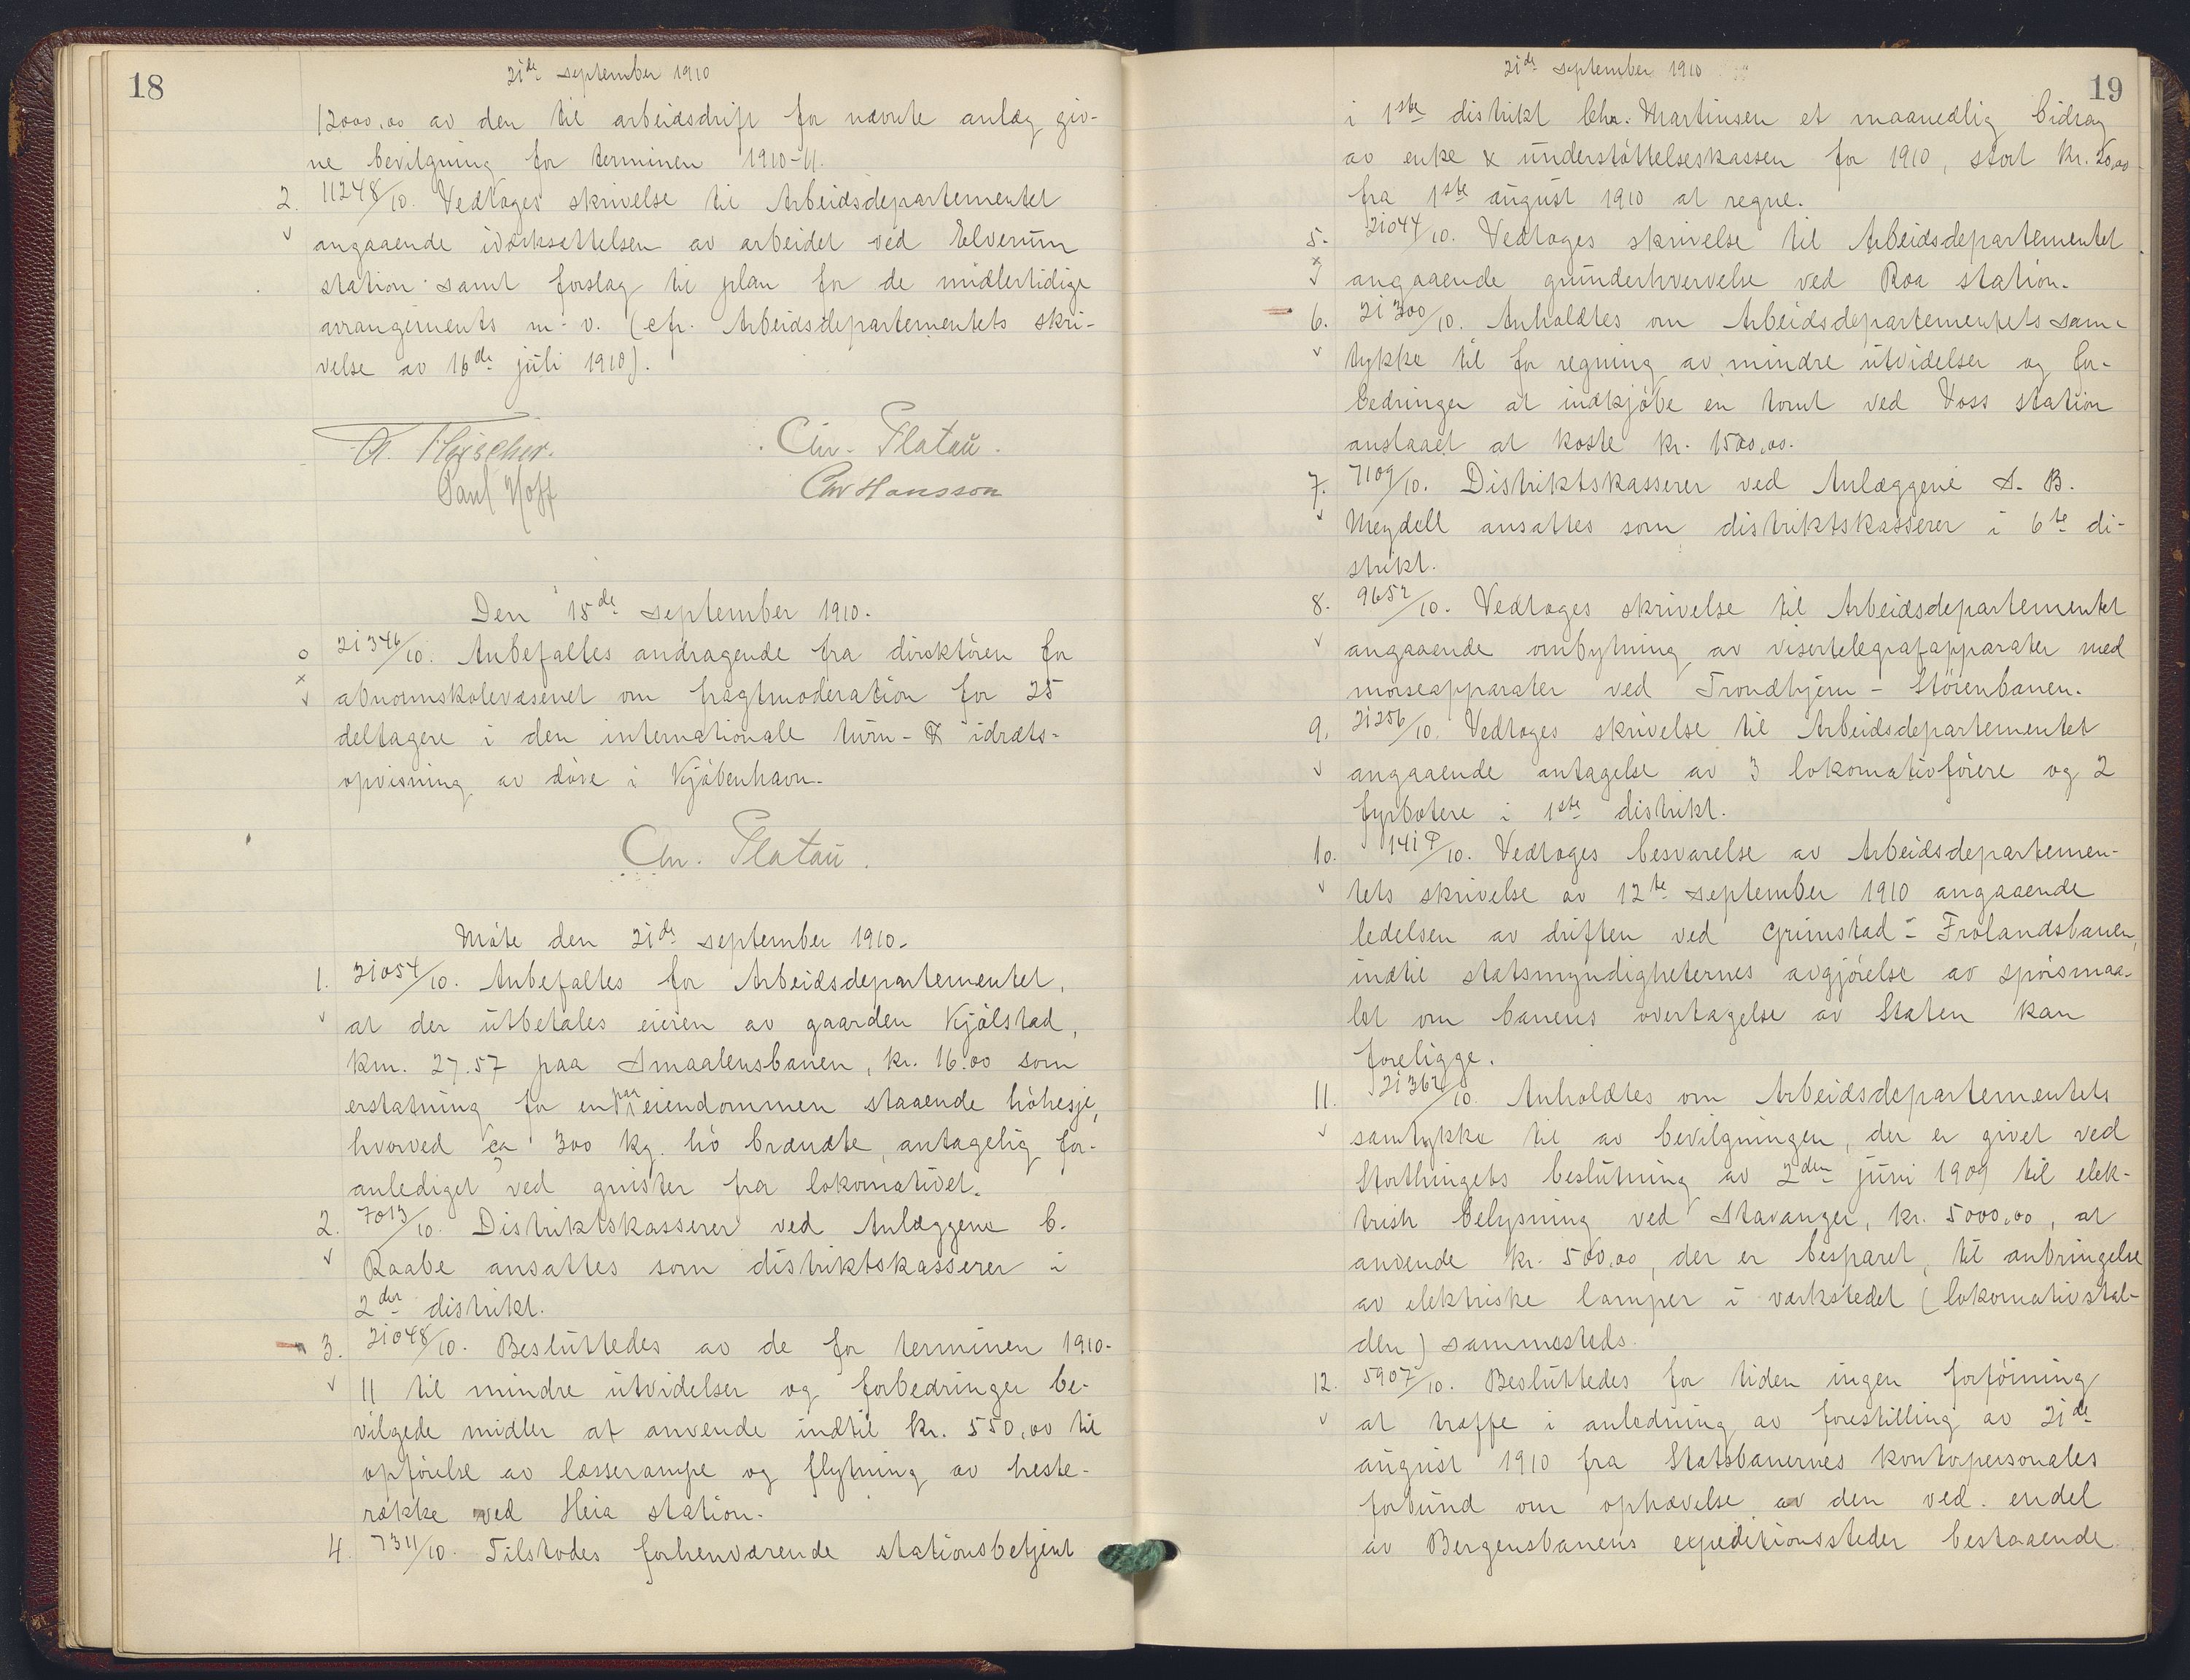 18
21de september 1910
12000,00 av den til arbeidsdrift for nævnte anlæg giv-
ne bevilgning for terminen 1910-11.
2. 11248/10. Vedtoges skrivelse til Arbeidsdepartementet
angaaende iværksættelsen av arbeidet ved Elverum
station samt forslag til plan for de midlertidige
arrangements m. v. (cfr. Arbeidsdepartementets skri-
velse av 16de juli 1910).
Chr. Platou.
Paul Hoff Chr Hansson
Den 15de september 1910.
21346/10. Anbefaltes andragende fra direktøren for
abnormskolevæsenet om fragtmoderation for 25
deltagere i den internationale turn- & idræts-
opvisning av døve i Kjøbenhavn.
Chr. Platou.
Møte den 21de september 1910.
1. 21054/10. Anbefaltes for Arbeidsdepartementet,
at der utbetales eieren av gaarden Kjølstad,
km. 27.57 paa Smaalensbanen, kr. 16.00 som
erstatning for en paa eiendommen staaende høhesje,
hvorved ca 300 kg. hø brændte, antagelig for-
anlediget ved gnister fra lokomotivet.
2. 7013/10. Distriktskasserer ved Anlæggene C.
Raabe ansattes som distriktskasserer i
2det distrikt.
3. 21048/10. Besluttedes av de for terminen 1910-
11 til mindre utvidelser og forbedringer be-
vilgede midler at anvende indtil kr. 550,00 til
opførelse av læsserampe og flytning av heste-
række ved Heia station.
4. 7311/10. Tilstodes forhenværende stationsbetjent
21de september 1910
19
i 1ste distrikt Chr. Martinsen et maanedlig bidrag
av enke & understøttelseskassen for 1910, stort kr. 20,00
fra 1ste august 1910 at regne.
5. 21044/10. Vedtoges skrivelse til Arbeidsdepartementet
angaaende grunderhvervelse ved Roa station.
6. 21300/10. Anholdtes om Arbeidsdepartementets sam-
tykke til for regning av mindre utvidelser og for-
bedringer at indkjøbe en tomt ved Voss station
anslaaet at koste kr. 1500,00.
7. 7109/10. Distriktskasserer ved Anlæggene S. B.
Meydell ansattes som distriktskasserer i 6te di-
strikt.
8. 9652/10. Vedtoges skrivelse til Arbeidsdepartementet
angaaende ombytning av visertelegrafapparater med
morseapparater ved Trondhjem - Størenbanen.
9. 21256/10. Vedtoges skrivelse til Arbeidsdepartementet
angaaende antagelse av 3 lokomotivførere og 2
fyrbøtere i 1ste distrikt.
10. 141P/10. Vedtoges besvarelse av Arbeidsdepartemen-
tets skrivelse av 12te september 1910 angaaende
ledelsen av driften ved Grimstad - Frolandsbanen,
indtil statsmyndigheternes avgjørelse av spørsmaa-
let om banens overtagelse av Staten kan
foreligge.
11. 21362/10. Anholdtes om Arbeidsdepartementets
samtykke til av bevilgningen, der er givet ved
Storthingets beslutning av 2den juni 1909 til elek-
trisk belysning ved Stavanger, kr. 5000,00, at
anvende kr. 500,00, der er besparet, til anbringelse
av elektriske lamper i verkstedet (lokomotivstal-
den) sammesteds.
12. 5907/10. Besluttedes for tiden ingen forføining
at træffe i anledning av forestilling av 21de
august 1910 fra Statsbanernes kontorpersonales
forbund om ophævelse av den ved endel
av Bergensbanens expeditionssteder bestaaende